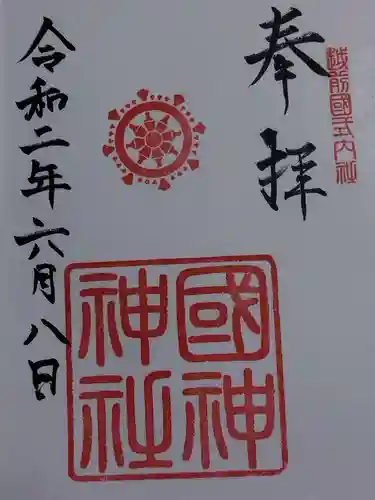 奉拝
越前國式内社
國神
神社
令和二年六月八日